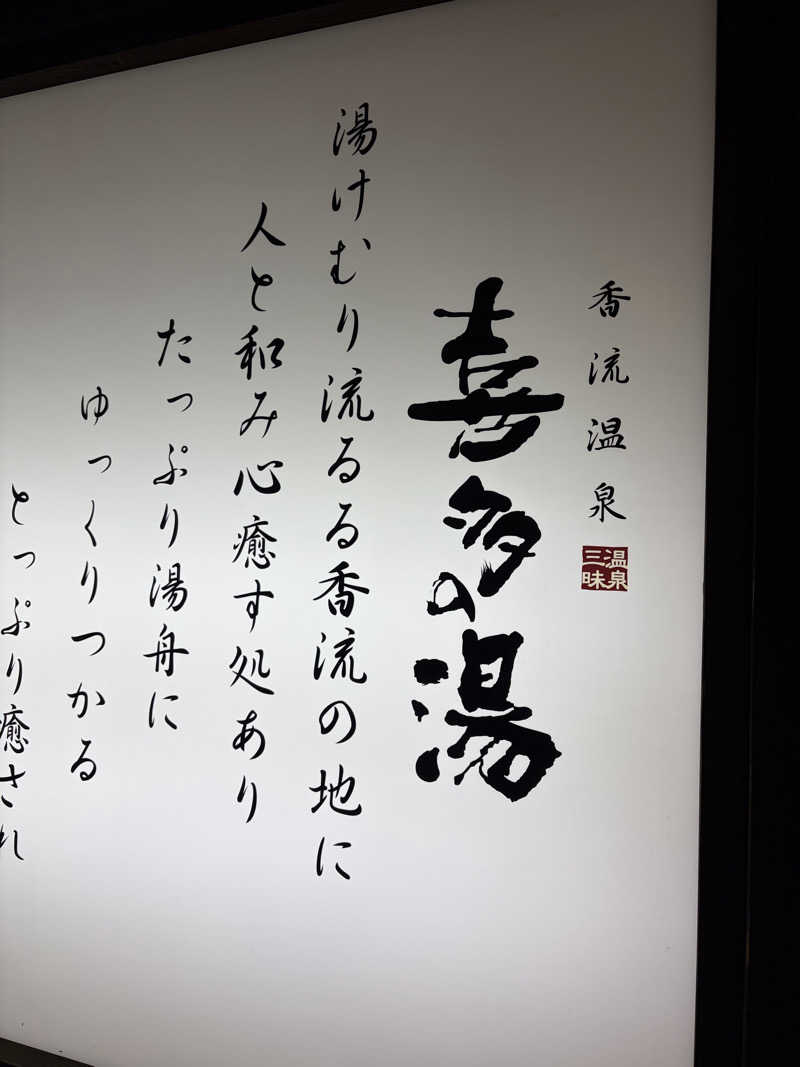 香流温泉
温泉三昧
喜多の湯
湯けむり流るる香流の地に
人と和み心癒す処あり
たっぷり湯舟に
ゆっくりつかる
とっぷり癒され